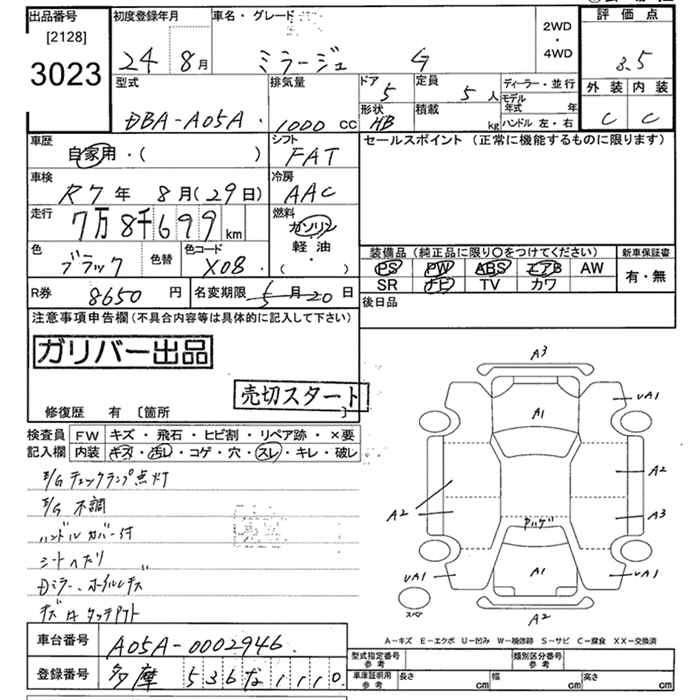 出品番号
[2128]
3023
初度登録年月
24 8月
車名・グレード
ミラージュ G
2WD
・
4WD
評価点
3.5
外装 内装
C C
型式
DBA-A05A
排気量
1000 cc
ドア
5
定員
5人
ディーラー・並行
モデル年式 年
形状
HB
積載
kg
ハンドル 左・右
車歴
自家用・( )
シフト
FAT
セールスポイント (正常に機能するものに限ります)
車検
R7年 8月(29日)
冷房
AAC
走行
7万8千699 km
燃料
ガソリン
軽油
・
( )
色
ブラック
色替
色コード
X08
装備品 (純正品に限り〇をつけてください)
新車保証書
PS PW ABS エアB AW
有・無
SR ナビ TV カワ
R券
8650 円
名変期限
6月20日
後日品
注意事項申告欄 (不具合内容等は具体的に記入して下さい)
ガリバー出品
売切スタート
修復歴 有 [箇所 ]
検査員
記入欄
FW キズ・飛石・ヒビ割・リペア跡・×要
内装 キズ・汚レ・コゲ・穴・スレ・キレ・破レ
E/Gチェックランプ点灯
E/G不調
ハンドルカバー付
シートヘタリ
キズ有タッチアト
A3
A1
UA1
A2
A2
A3
A1
UA1
UA1
A2
スペア
A-キズ E-エクボ U-凹み W-補修跡 S-サビ C-腐食 XX-交換済
車台番号
A05A-0002946
登録番号
多摩 536な1110
型式指定番号
参考
類別区分番号
参考
車庫証明用
参考
長さ cm
幅 cm
高さ cm